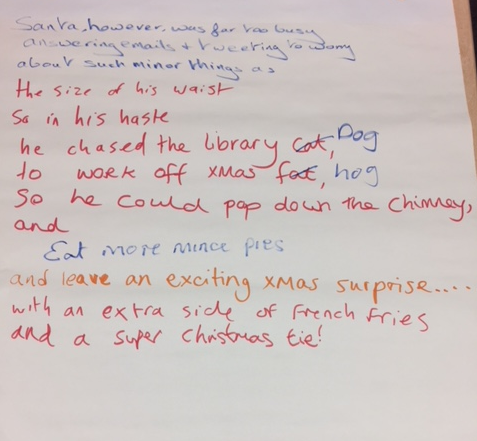 Santa, however, was far too busy
answering emails + tweeting to worry
about such minor things as
the size of his waist
So in his haste
he chased the library cat, Dog
to work off xmas fat, hog
So he could pop down the chimney,
and
Eat more mince pies
and leave an exciting xmas surprise....
with an extra side of French fries
and a super christmas tie!